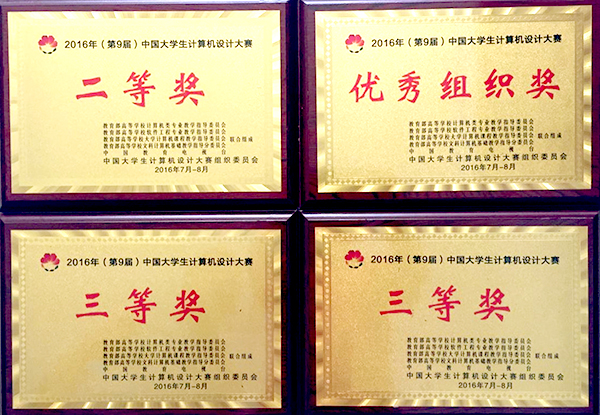 2016年（第9届）中国大学生计算机设计大赛
二等奖
教育部高等学校计算机类专业教学指导委员会
教育部高等学校软件工程专业教学指导委员会
教育部高等学校大学计算机课程教学指导委员会 联合组成
教育部高等学校文科计算机基础教学指导分委员会
中国教育电视台
中国大学生计算机设计大赛组织委员会
2016年7月-8月
2016年（第9届）中国大学生计算机设计大赛
优秀组织奖
教育部高等学校计算机类专业教学指导委员会
教育部高等学校软件工程专业教学指导委员会
教育部高等学校大学计算机课程教学指导委员会 联合组成
教育部高等学校文科计算机基础教学指导分委员会
中国教育电视台
中国大学生计算机设计大赛组织委员会
2016年7月-8月
2016年（第9届）中国大学生计算机设计大赛
三等奖
教育部高等学校计算机类专业教学指导委员会
教育部高等学校软件工程专业教学指导委员会
教育部高等学校大学计算机课程教学指导委员会 联合组成
教育部高等学校文科计算机基础教学指导分委员会
中国教育电视台
中国大学生计算机设计大赛组织委员会
2016年7月-8月
2016年（第9届）中国大学生计算机设计大赛
三等奖
教育部高等学校计算机类专业教学指导委员会
教育部高等学校软件工程专业教学指导委员会
教育部高等学校大学计算机课程教学指导委员会 联合组成
教育部高等学校文科计算机基础教学指导分委员会
中国教育电视台
中国大学生计算机设计大赛组织委员会
2016年7月-8月